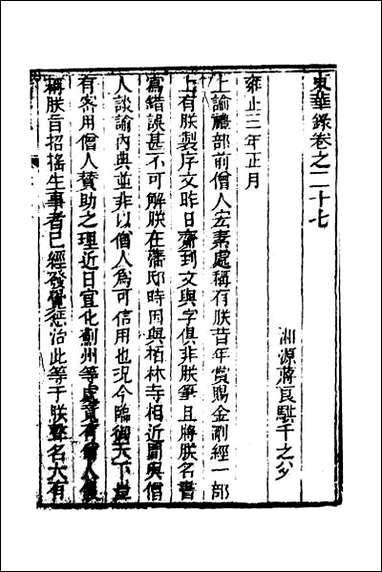 東華錄卷之二十七
湘源蔣良騏千之父
雍正三年正月
上諭禮部前僧人宏素處稱有朕昔年賞賜金剛經一部
上有朕製序文昨日齎到文與字俱非朕筆且將朕名書
寫錯誤甚不可解朕在藩邸時因與栢林寺相近閒與僧
人談論內典並非以僧人為可信用也況今臨御天下豈
有客用僧人贊助之理近日宜化薊州等處竟有僧人
稱朕旨招搖生事者已經發覺懲治此等于朕聲名大有